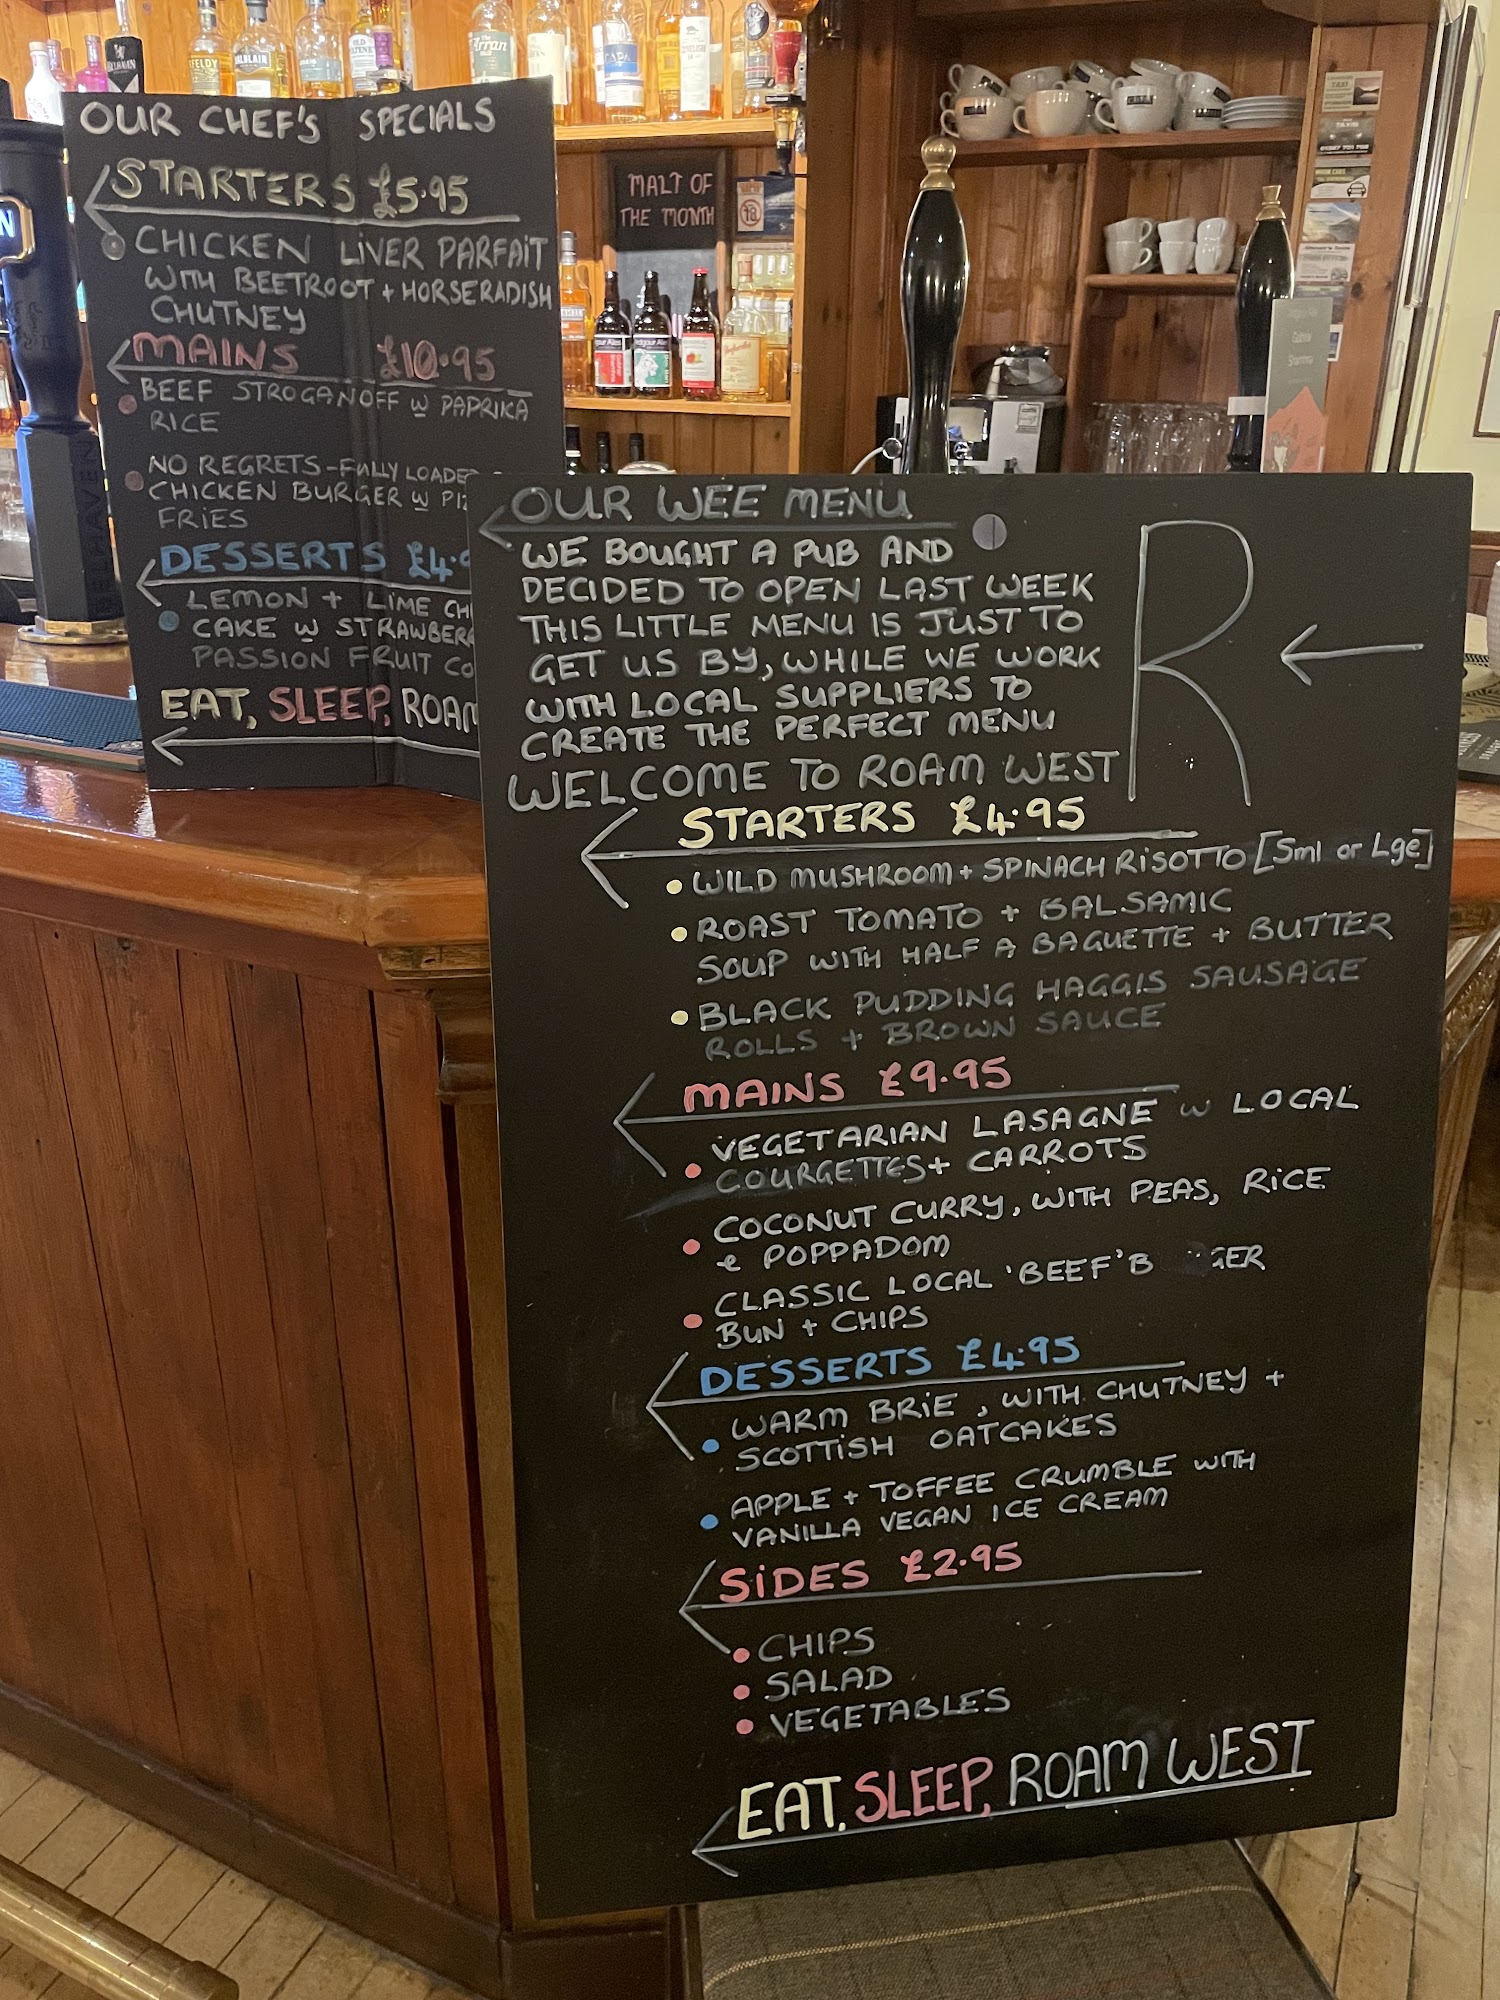 OUR CHEF'S SPECIALS
STARTERS £5.95
CHICKEN LIVER PARFAIT
WITH BEETROOT + HORSERADISH
CHUTNEY
MAINS £10.95
BEEF STROGANOFF W PAPRIKA
RICE
NO REGRETS - FULLY LOADED
CHICKEN BURGER W
FRIES
DESSERTS
LEMON + LIME
CAKE W
PASSION FRUIT
EAT, SLEEP, ROAM
MALT OF
THE MONTH
OUR WEE MENU
WE BOUGHT A PUB AND
DECIDED TO OPEN LAST WEEK
THIS LITTLE MENU IS JUST TO
GET US BY, WHILE WE WORK
WITH LOCAL SUPPLIERS TO
CREATE THE PERFECT MENU
WELCOME TO ROAM WEST
R
STARTERS £4.95
WILD MUSHROOM + SPINACH RISOTTO [Sml or Lge]
ROAST TOMATO + BALSAMIC
SOUP WITH HALF A BAGUETTE + BUTTER
BLACK PUDDING HAGGIS SAUSAGE
ROLLS + BROWN SAUCE
MAINS £9.95
VEGETARIAN LASAGNE W LOCAL
COURGETTES + CARROTS
COCONUT CURRY, WITH PEAS, RICE
& POPPADOM
CLASSIC LOCAL 'BEEF' B GER
BUN + CHIPS
DESSERTS £4.95
WARM BRIE, WITH CHUTNEY +
SCOTTISH OATCAKES
APPLE + TOFFEE CRUMBLE WITH
VANILLA VEGAN ICE CREAM
SIDES £2.95
CHIPS
SALAD
VEGETABLES
EAT, SLEEP, ROAM WEST
BELHAVEN
Arran
TAXI
18